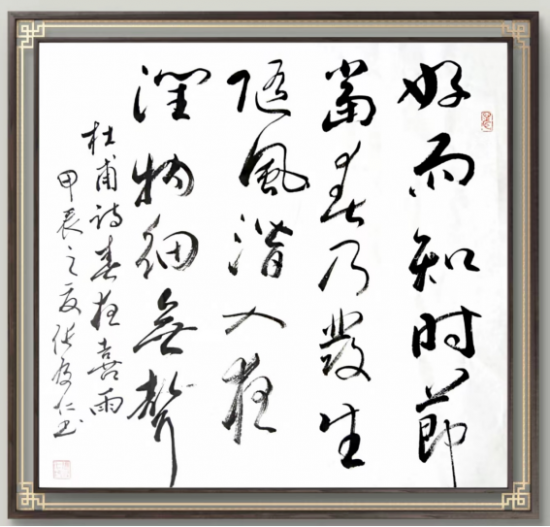 好雨知时節
當春乃發生
随風潜入夜
潤物细無聲
杜甫诗春夜喜雨
甲辰之夏张仁书